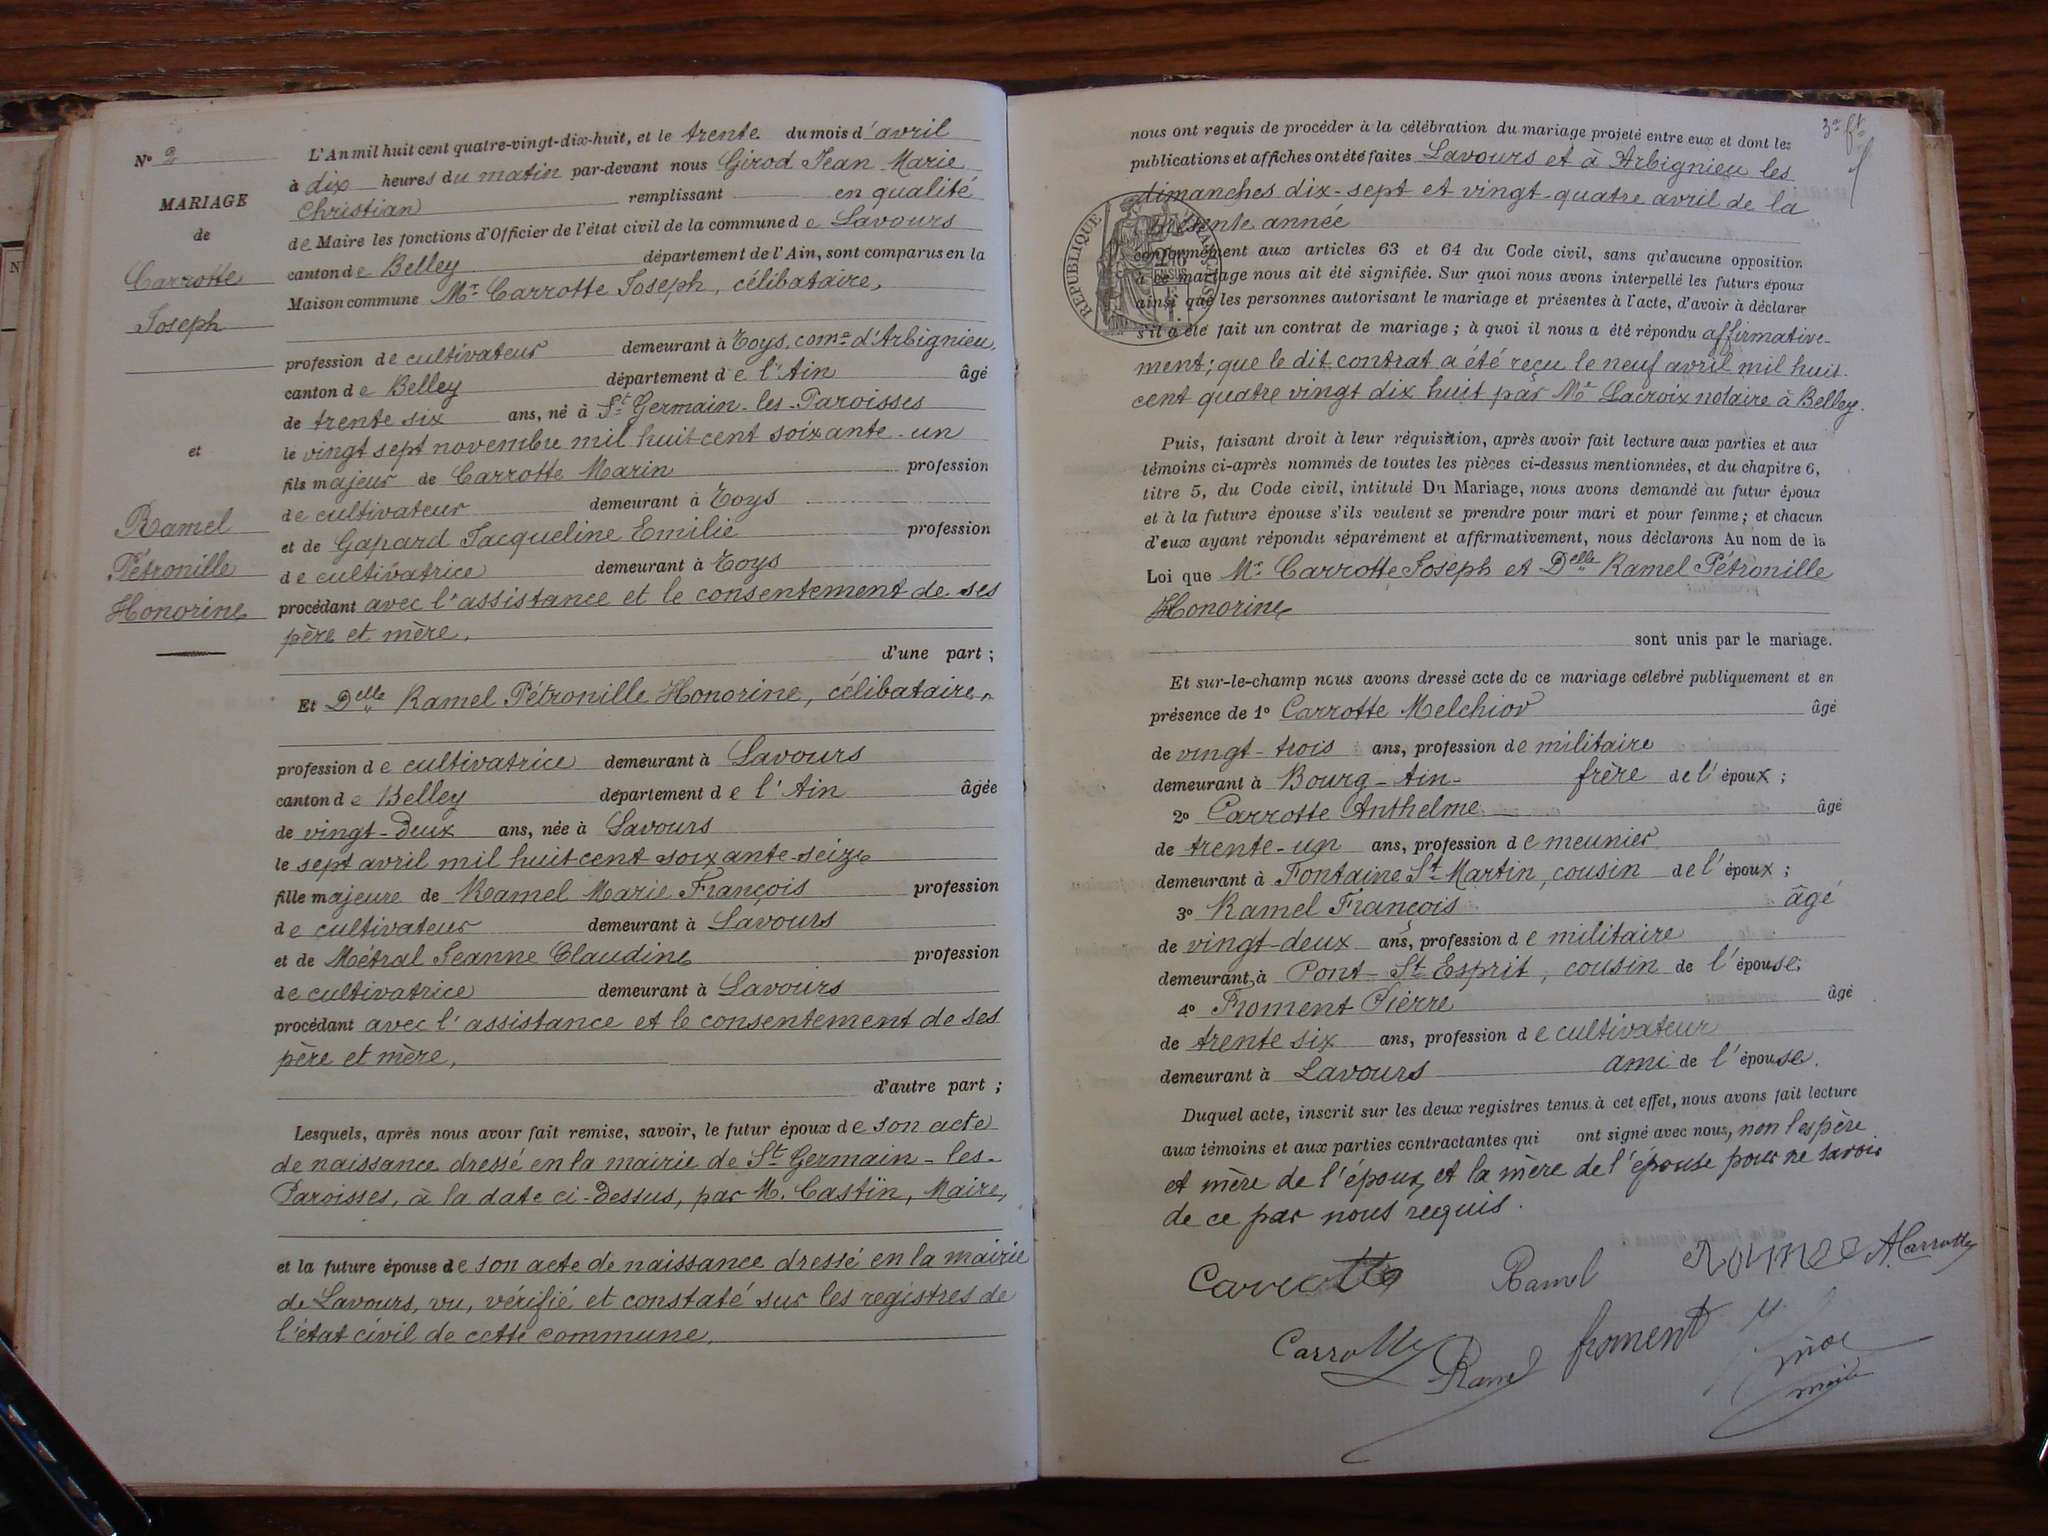 N° 2
MARIAGE
de
Carrotte
Joseph
et
Ramel
Pétronille
Honorine
L'An mil huit cent quatre-vingt-dix-huit, et le trente du mois d'avril
à dix heures du matin par-devant nous Girod Jean Marie
Christian remplissant en qualité
de Maire les fonctions d'Officier de l'état civil de la commune de Lavours
canton de Belley département de l'Ain, sont comparus en la
Maison commune Mr Carrotte Joseph, célibataire,
profession de cultivateur demeurant à Toys, comne d'Arbignieu,
canton de Belley département de l'Ain âgé
de trente six ans, né à St Germain-les-Paroisses
le vingt sept novembre mil huit cent soixante-un
fils majeur de Carrotte Marin profession
de cultivateur demeurant à Toys
et de Gapard Jacqueline Emilie profession
de cultivatrice demeurant à Toys
procédant avec l'assistance et le consentement de ses
père et mère,
d'une part ;
Et Delle Ramel Pétronille Honorine, célibataire,
profession de cultivatrice demeurant à Lavours
canton de Belley département de l'Ain âgée
de vingt-deux ans, née à Lavours
le sept avril mil huit cent soixante-seize
fille majeure de Ramel Marie François profession
de cultivateur demeurant à Lavours
et de Métral Jeanne Claudine profession
de cultivatrice demeurant à Lavours
procédant avec l'assistance et le consentement de ses
père et mère,
d'autre part ;
Lesquels, après nous avoir fait remise, savoir, le futur époux de son acte
de naissance dressé en la mairie de St Germain-les-
Paroisses, à la date ci-dessus, par M. Castin, Maire,
et la future épouse de son acte de naissance dressé en la mairie
de Lavours, vu, vérifié et constaté sur les registres de
l'état civil de cette commune,
nous ont requis de procéder à la célébration du mariage projeté entre eux et dont les
publications et affiches ont été faites Lavours et à Arbignieu les
dimanches dix-sept et vingt-quatre avril de la
présente année
conformément aux articles 63 et 64 du Code civil, sans qu'aucune opposition
à ce mariage nous ait été signifiée. Sur quoi nous avons interpellé les futurs époux
ainsi que les personnes autorisant le mariage et présentes à l'acte, d'avoir à déclarer
s'il a été fait un contrat de mariage ; à quoi il nous a été répondu affirmative-
ment; que le dit contrat a été reçu le neuf avril mil huit
cent quatre vingt dix huit par Me Lacroix notaire à Belley.
Puis, faisant droit à leur réquisition, après avoir fait lecture aux parties et aux
témoins ci-après nommés de toutes les pièces ci-dessus mentionnées, et du chapitre 6,
titre 5, du Code civil, intitulé Du Mariage, nous avons demandé au futur époux
et à la future épouse s'ils veulent se prendre pour mari et pour femme ; et chacun
d'eux ayant répondu séparément et affirmativement, nous déclarons Au nom de la
Loi que Mr Carrotte Joseph et Delle Ramel Pétronille
Honorine
sont unis par le mariage.
Et sur-le-champ nous avons dressé acte de ce mariage célébré publiquement et en
présence de 1° Carrotte Melchior âgé
de vingt-trois ans, profession de militaire
demeurant à Bourg-Ain- frère de l'époux ;
2° Carrotte Anthelme âgé
de trente-un ans, profession de meunier
demeurant à Fontaine St Martin, cousin de l'époux ;
3° Ramel François âgé
de vingt-deux ans, profession de militaire
demeurant à Pont-St Esprit, cousin de l'épouse;
4° Froment Pierre âgé
de trente six ans, profession de cultivateur
demeurant à Lavours ami de l'épouse.
Duquel acte, inscrit sur les deux registres tenus à cet effet, nous avons fait lecture
aux témoins et aux parties contractantes qui ont signé avec nous, non les père
et mère de l'époux, et la mère de l'épouse pour ne savoir
de ce par nous requis.
RÉPUBLIQUE FRANÇAISE
Carrotte Ramel A. Carrotte
Carrotte Ramel froment
maire